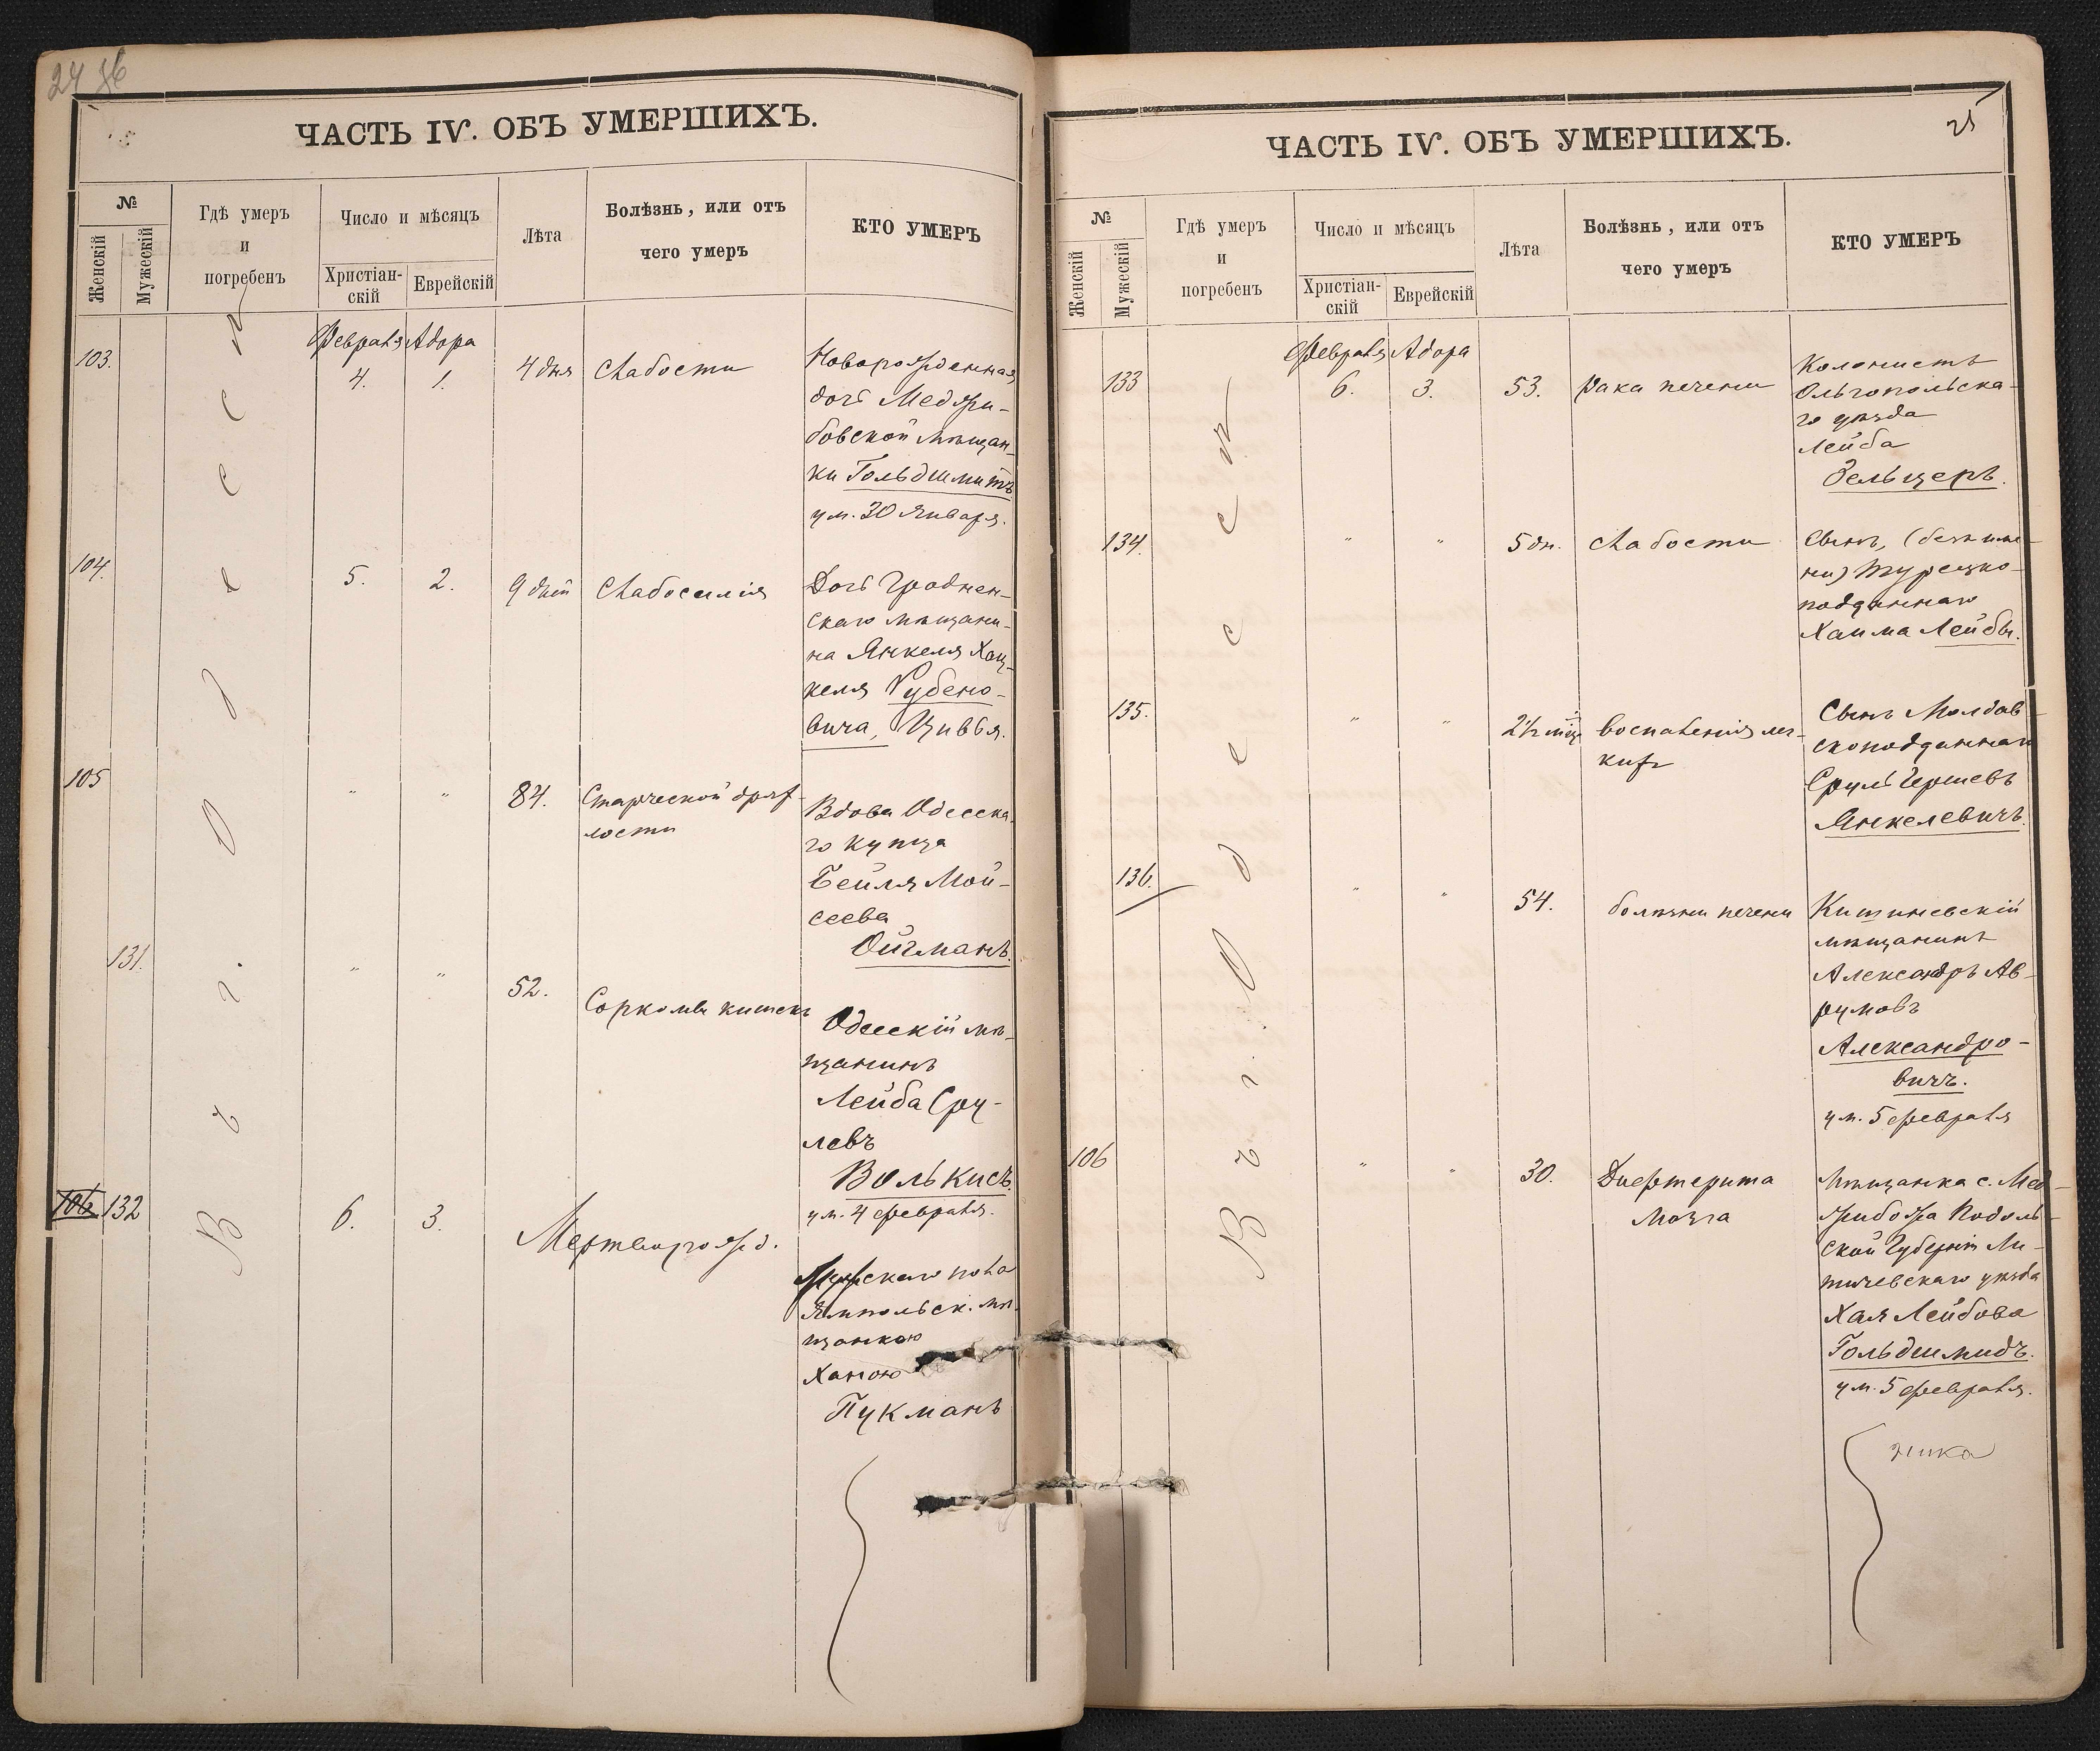 24 36
ЧАСТЬ IV. ОБЪ УМЕРШИХЪ.
№
Женскій
Мужескій
Гдѣ умеръ
и
погребенъ
Число и мѣсяцъ
Христіан-
скій
Еврейскій
Лѣта
Болѣзнь, или отъ
чего умеръ
КТО УМЕРЪ
Въ г. Одессѣ
103.
Февраля Адора
4. 1.
4 дня
Слабости
Новорожденная
дочь Меджи-
бовской мѣщан-
ки Гольдшмитъ
ум. 30 Января.
104.
5. 2.
9 дней
Слабосилія
Дочь Гроднен-
скаго мѣщани-
на Янкеля Хац-
келя Рубено-
вича, Цивья.
105
" "
84.
Старческой дрях-
лости
Вдова Одесска-
го купца
Бейля Мой-
сеева
Ойгманъ.
131.
" "
52.
Саркомы кишекъ
Одесскій мѣ-
щанинъ
Лейба Сру-
левъ
Волькисъ.
ум. 4 февраля.
106. 132
6. 3.
Мертворожд.
Мужскаго пола
Ямпольск. мѣ-
щанкою
Ханою
Пукманъ
25
ЧАСТЬ IV. ОБЪ УМЕРШИХЪ.
№
Женскій
Мужескій
Гдѣ умеръ
и
погребенъ
Число и мѣсяцъ
Христіан-
скій
Еврейскій
Лѣта
Болѣзнь, или отъ
чего умеръ
КТО УМЕРЪ
Въ г. Одессѣ
133
Февраля Адора
6. 3.
53.
Рака печени
Колонистъ
Ольгопольска-
го уѣзда
Лейба
Зельцеръ.
134.
" "
5 дн.
Слабости
Сынъ, (безъ име-
ни) Турецко-
подданнаго
Хаима Лейбы.
135.
" "
2½ мѣс
Воспаленія лег-
кихъ
Сынъ Молдав-
скоподданнаго
Сруль Гершевъ
Янкелевичъ.
136.
" "
54.
болѣзни печени
Кишиневскій
мѣщанинъ
Александръ Ав-
румовъ
Александро-
вичъ.
ум. 5 февраля
106
" "
30.
Дифтерита
Мозга
Мѣщанка с. Мед-
жибожа Подоль-
ской Губерніи Ли-
тичевскаго уѣзда
Хая Лейбова
Гольдшмидъ.
ум. 5 февраля.